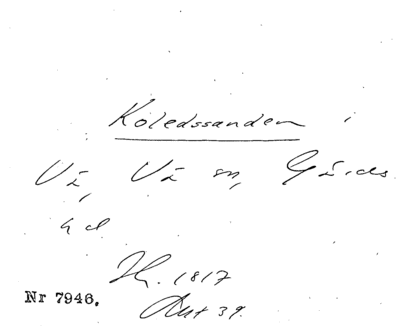 Koledssanden i
Vä, Vä sn, Gärds
hd
Hr. 1817
Nr 7946.
Akt 39.